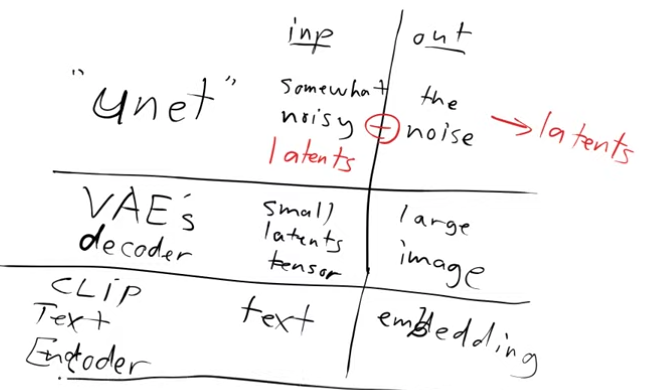 inp out
"unet"
somewhat
noisy
latents
−
the
noise
→ latents
VAE's
decoder
small
latents
tensor
large
image
CLIP
Text
Encoder
text
embedding